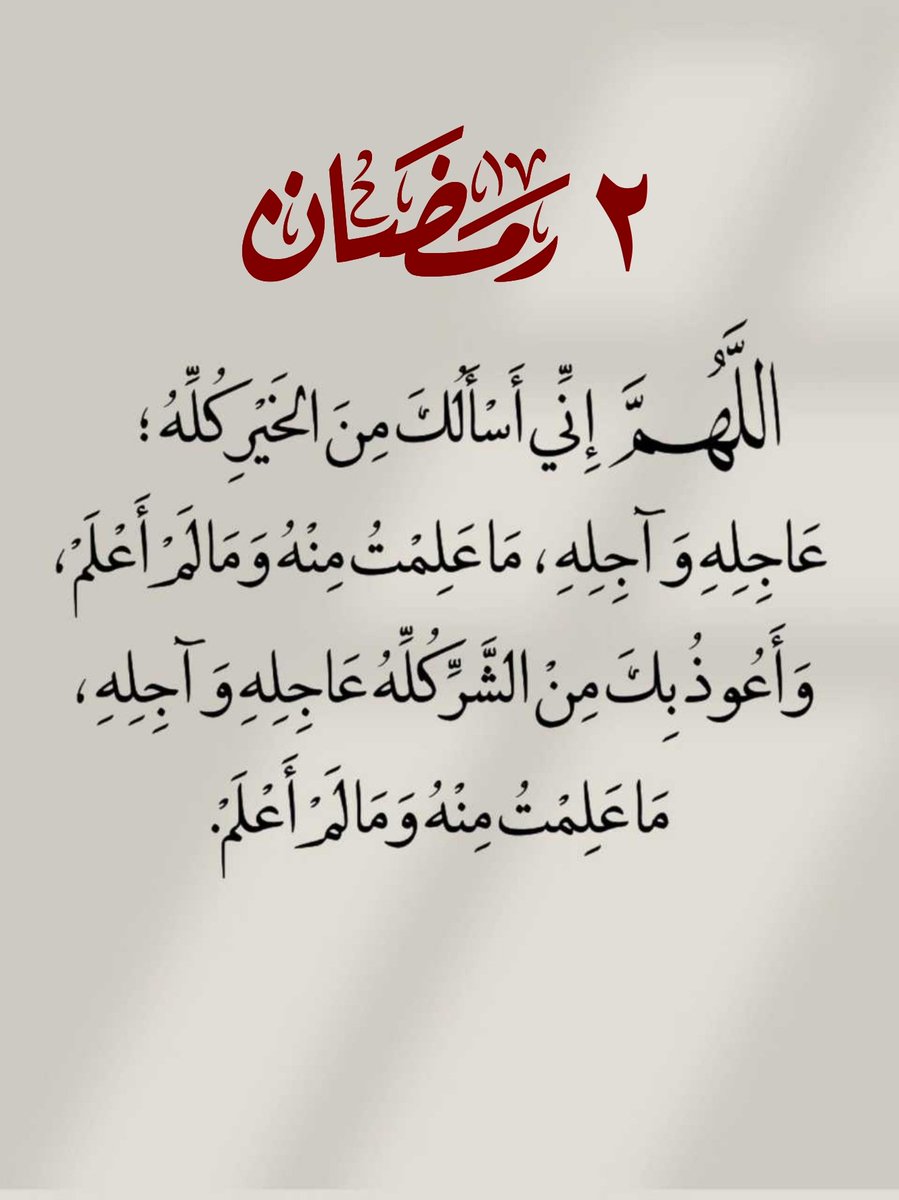 ٢ رمضان
اللَّهُمَّ إِنِّي أَسْأَلُكَ مِنَ الخَيْرِ كُلِّهُ؛
عَاجِلِهِ وَآجِلِهِ، مَا عَلِمْتُ مِنْهُ وَمَا لَمْ أَعْلَمْ،
وَأَعُوذُ بِكَ مِنْ الشَّرِّ كُلِّهُ عَاجِلِهِ وَآجِلِهِ،
مَا عَلِمْتُ مِنْهُ وَمَا لَمْ أَعْلَمْ.